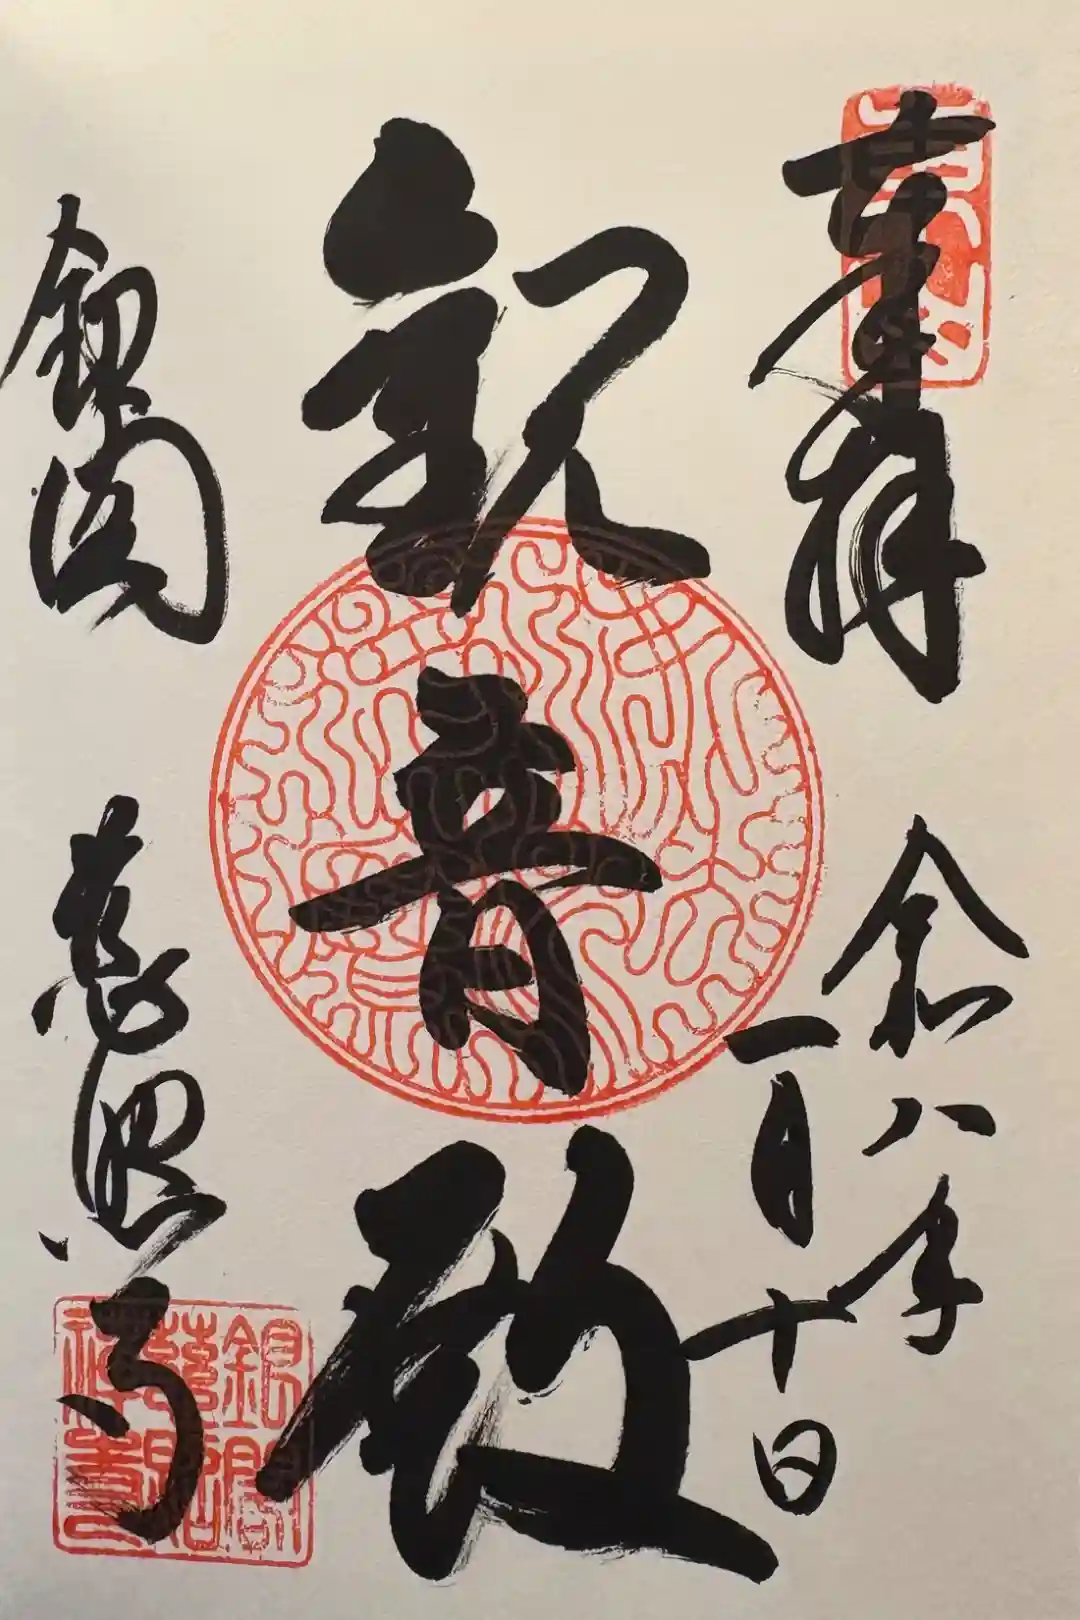 奉拝
令和八年
一月十日
観音殿
銀閣
慈照寺
銀閣慈照禅寺